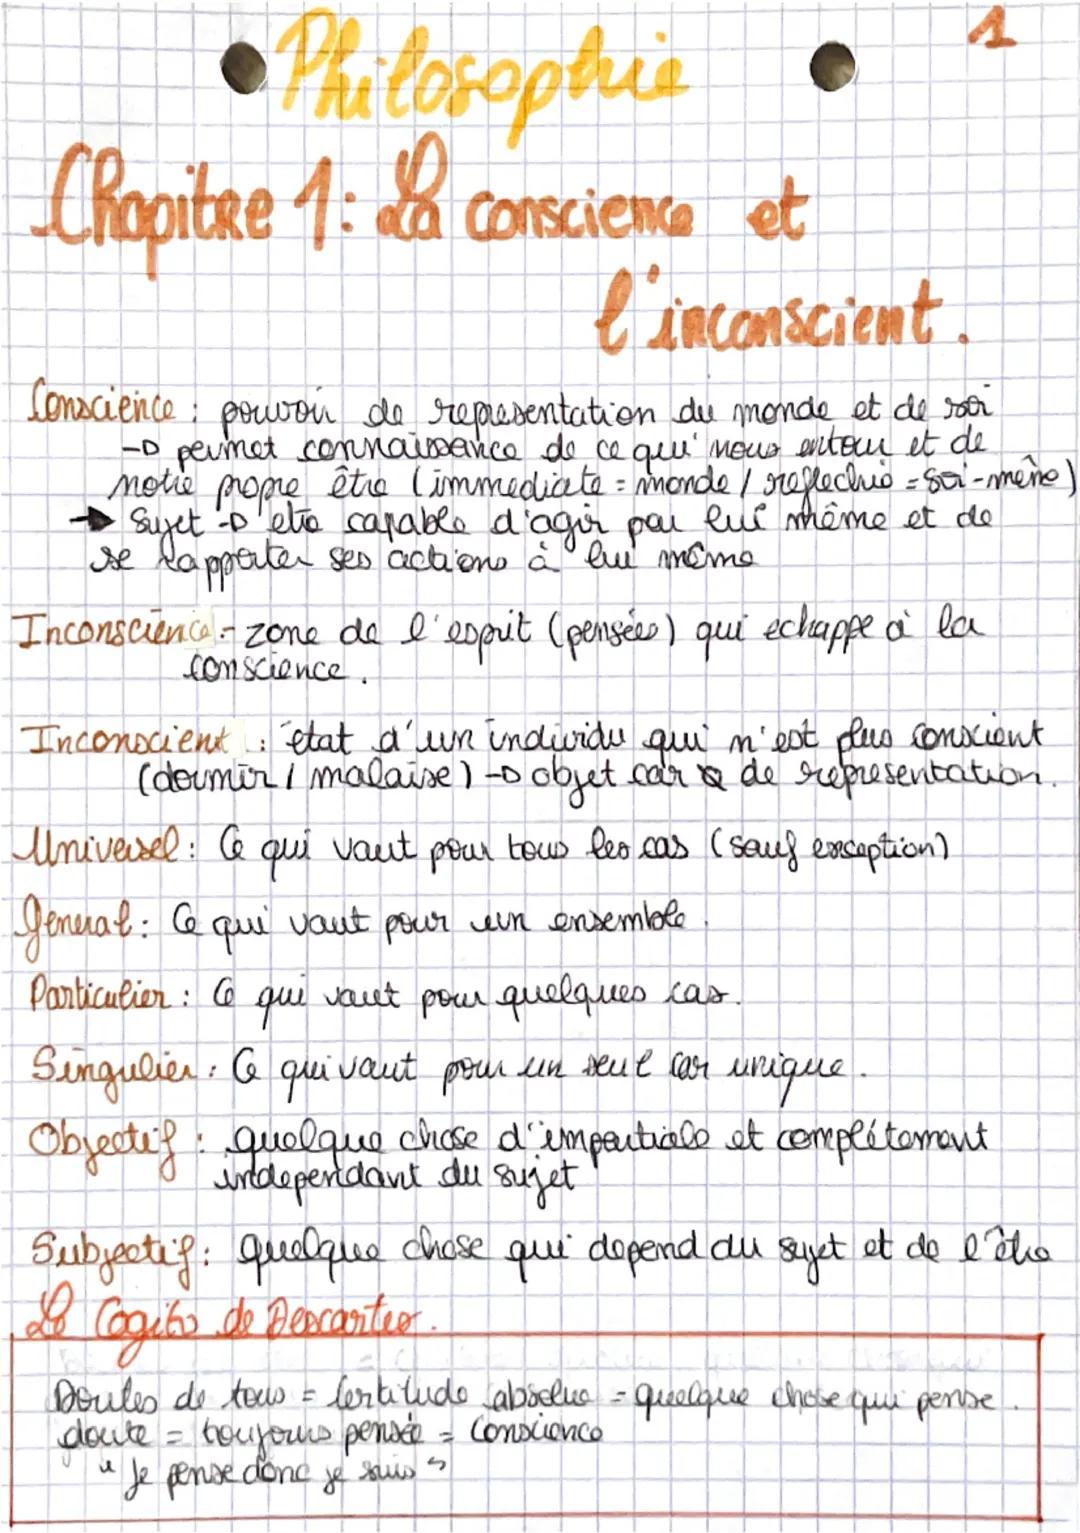 1
Philosophie
Chapitre 1: La conscience et
l'inconscient.
Conscience : pouvoir de representation du monde et de soi
→ permet connaissance de ce qui nous entour et de
notre propre être (immediate = monde / reflechie = soi-même)
→ Sujet → être capable d'agir par lui même et de
se rapporter ses actions à lui même
Inconscience :- zone de l'esprit (pensées) qui echappe à la
conscience.
Inconscient : état d'un individu qui n'est plus conscient
(dormir / malaise) → objet car de representation.
Universel : Ce qui vaut pour tous les cas (sauf exception)
General : Ce qui vaut pour un ensemble.
Particulier : Ce qui vaut pour quelques cas.
Singulier : Ce qui vaut pour un seul car unique.
Objectif : quelque chose d'impartiale et complétement
independant du sujet
Subjectif : quelque chose qui depend du sujet et de l'être
Le Cogito de Descartes.
Doutes de tous = Certitude absolue = quelque chose qui pense.
doute = toujours pensée = Conscience
"Je pense donc je suis"